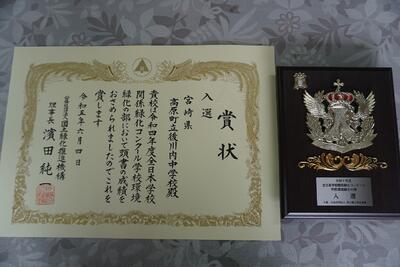 賞状
入選
宮崎県
高原町立後川内中学校殿
貴校は令和四年度全日本学校
関係緑化コンクール学校環境
緑化の部において頭書の成績を
おさめられましたのでこれを
賞します
令和五年六月四日
公益社団法人国土緑化推進機構
理事長 濱田純一
入選